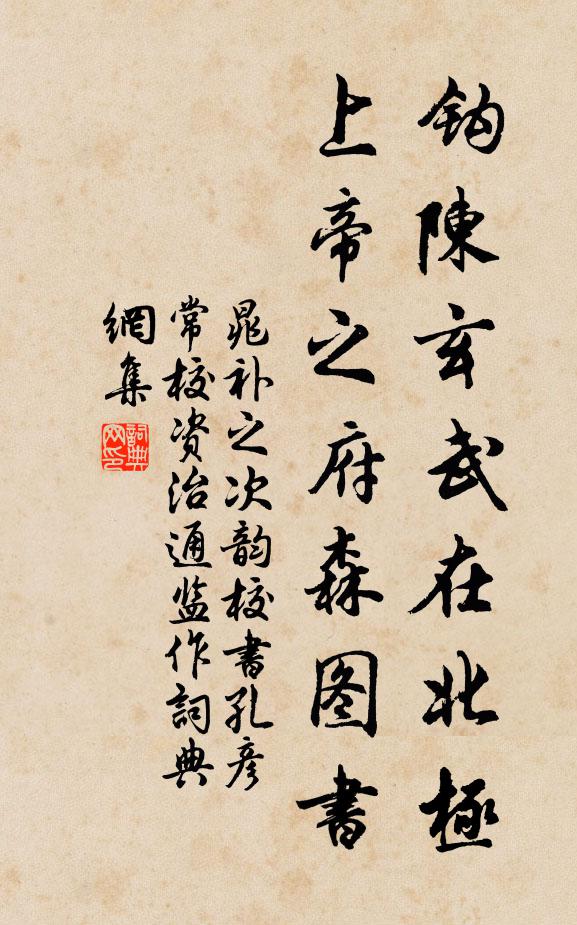 钩陳玄武在北極
上帝之府森图書
晁补之次韵校書孔彦
常校资治通监作詞典
網集
詞典
网印